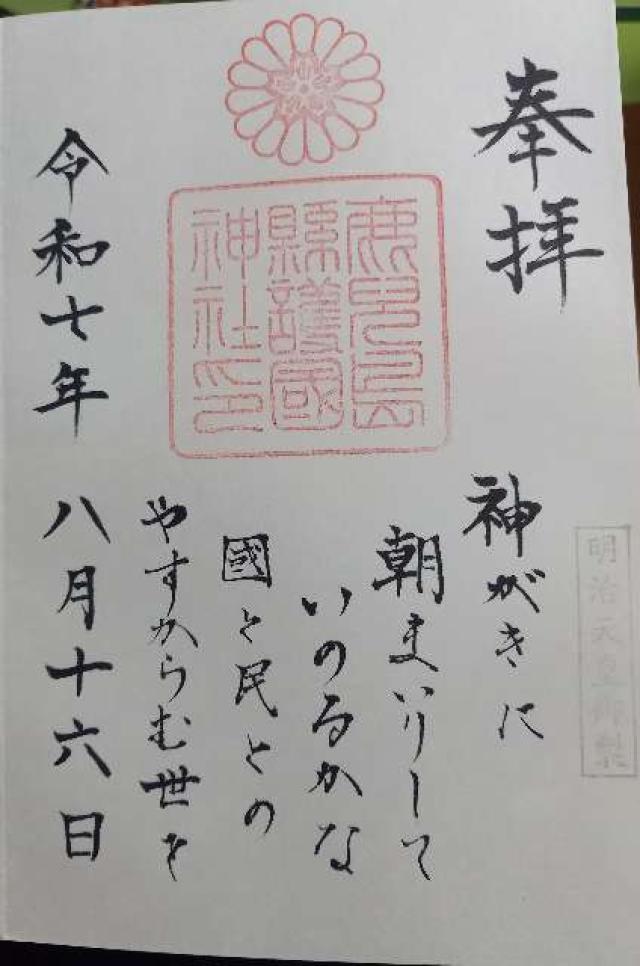 奉拝
鹿児島
縣護國
神社印
明治天皇御製
神がきに
朝まいりして
いのるかな
國と民との
やすからむ世を
令和七年 八月十六日